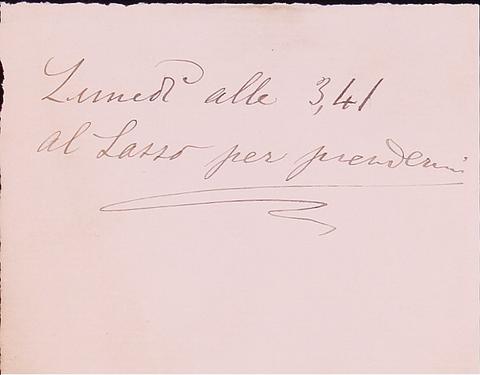 Lunedì alle 3,41
al Lasso per prendermi